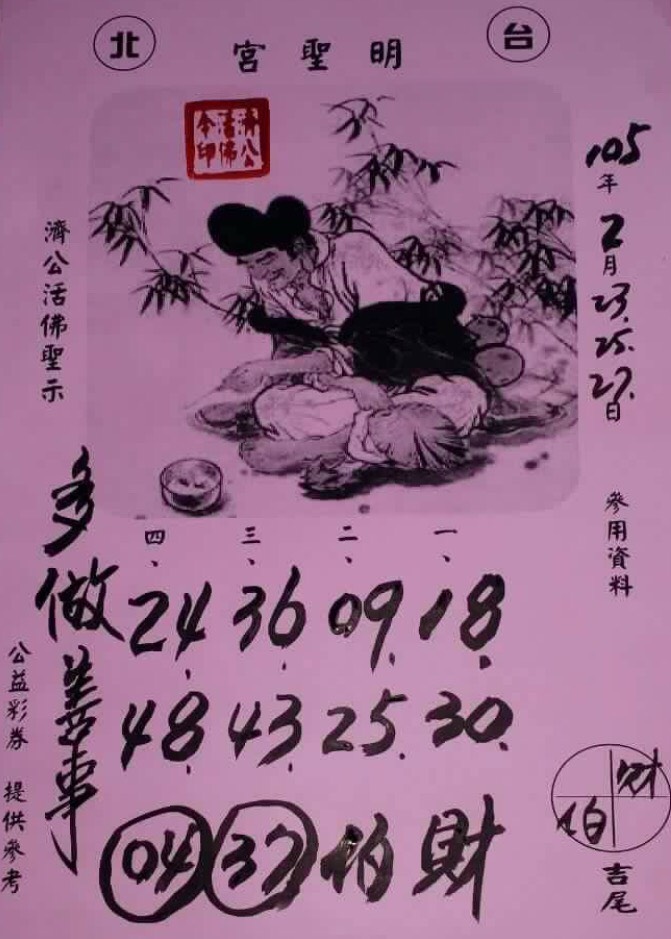 台北
明聖宮
濟公活佛令印
105年2月23.25.27.日
參用資料
濟公活佛聖示
一、二、三、四、
18. 09. 36. 24.
30. 25. 43. 48.
財伯 37 04
多做善事
公益彩券 提供參考
財伯
吉尾